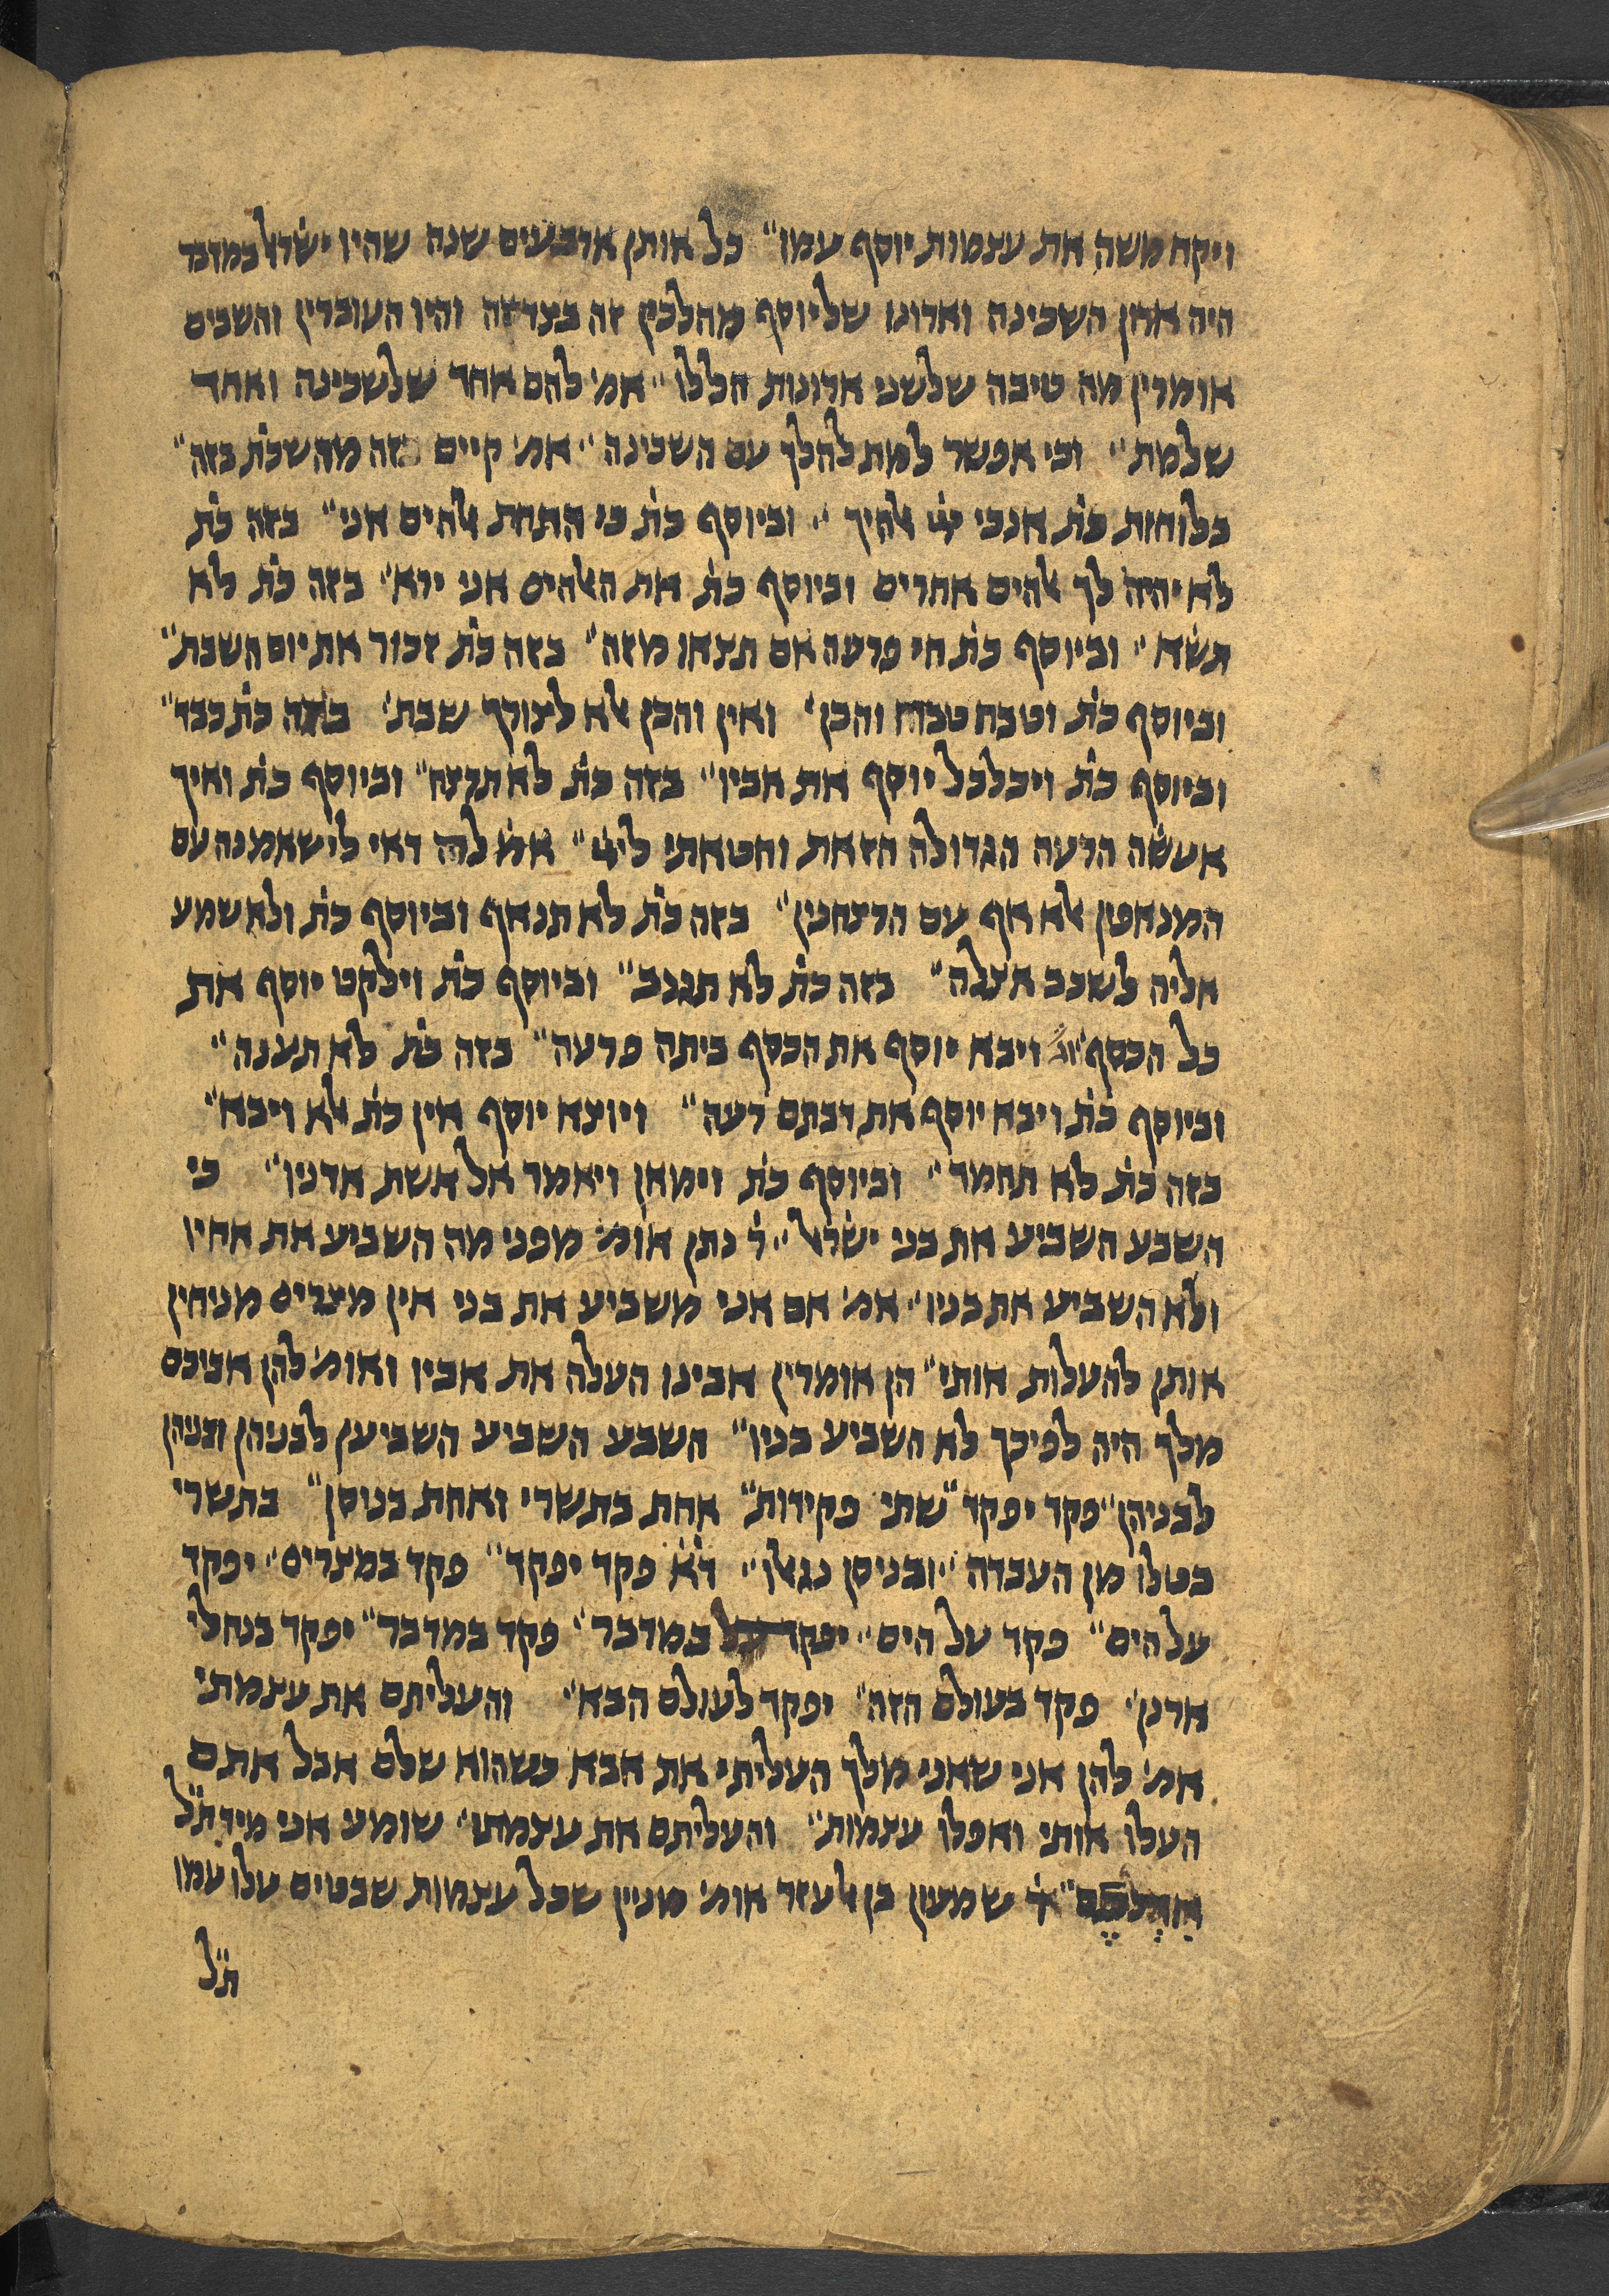 ויקח משה את עצמות יוסף עמו״ כל אותן ארבעים שנה שהיו ישׂרﭏ במדבר
היה ארון השכינה וארונו שליוסף מהלכין זה בצד זה והיו העוברין והשבים
אומרין מה טיבה שלשני ארונות הללו״ אמ׳ להם אחד שלשכינה ואחד
שלמת״ וכי אפשר למת להלך עם השכינה״ אמ׳ קיים זה מה שכת׳ בזה״
בלוחות כת׳ אנכי ﭏהיך״ וביוסף כת׳ כי התחת ﭏהים אני״ בזה כת׳
לא יהיה לך ﭏהים אחרים וביוסף כת׳ את הﭏהים אני ירא״ בזה כת׳ לא
תשׂא״ וביוסף כת׳ חי פרעה אם תצאו מזה״ בזה כת׳ זכור את יום השבת״
וביוסף כת׳ וטבח טבח והכן׳ ואין והכן ﭏא לצורך שבת׳ בזה כת׳ כבד״
וביוסף כת׳ ויכלכל יוסף את אביו״ בזה כת׳ לא תרצח״ וביוסף כת׳ ואיך
אעשׂה הרעה הגדולה הזאת וחטאתי לﭏהים״ אמ׳ לה דאי לי שאמנה עם
המנאפין ﭏא אף עם הרצחנין״ בזה כת׳ לא תנאף וביוסף כת׳ ולא שמע
אליה לשכב אצלה״ בזה כת׳ לא תגנב״ וביוסף כת׳ וילקט יוסף את
כל הכסף וג׳ ויבא יוסף את הכסף ביתה פרעה״ בזה כת׳ לא תענה״
וביוסף כת׳ ויבא יוסף את דבתם רעה״ ויוצא יוסף אין כת׳ ﭏא ויבא״
בזה כת׳ לא תחמד״ וביוסף כת׳ וימאן ויאמר אל אשת אדניו״ כי
השבע השביע את בני ישׂרﭏ״ ר׳ נתן אומ׳ מפני מה השביע את אחיו
ולא השביע את בניו״ אמ׳ אם אני משביע את בני אין מצרים מניחין
אותן להעלות אותי״ הן אומרין אבינו העלה את אביו ואומ׳ להן אביכם
מלך היה לפיכך לא השביע בניו״ השבע השביע השביען לבניהן ובניהן
לבניהן״ פקד יפקד״ שתי פקידות״ אחת בתשרי ואחת בניסן״ בתשרי
בטלו מן העבדה״ ובניסן נגאלו״ ד׳א׳ פקד יפקד״ פקד במצרים״ יפקד
על הים״ פקד על הים״ יפקד על במדבר״ פקד במדבר״ יפקד בנחלי
ארנן׳ פקד בעולם הזה״ יפקד לעולם הבא״ והעליתם את עצמתי
אמ׳ להן אני שאני מלך העליתי את אבא כשהוא שלם אבל אתם
העלו אותי ואפלו עצמות״ והעליתם את עצמתי״ שומע אני מיד ת״ל
אתכם״ ר׳ שמעון בן ﭏעזר אומ׳ מניין שכל עצמות שבטים עלו עמו
ת״ל